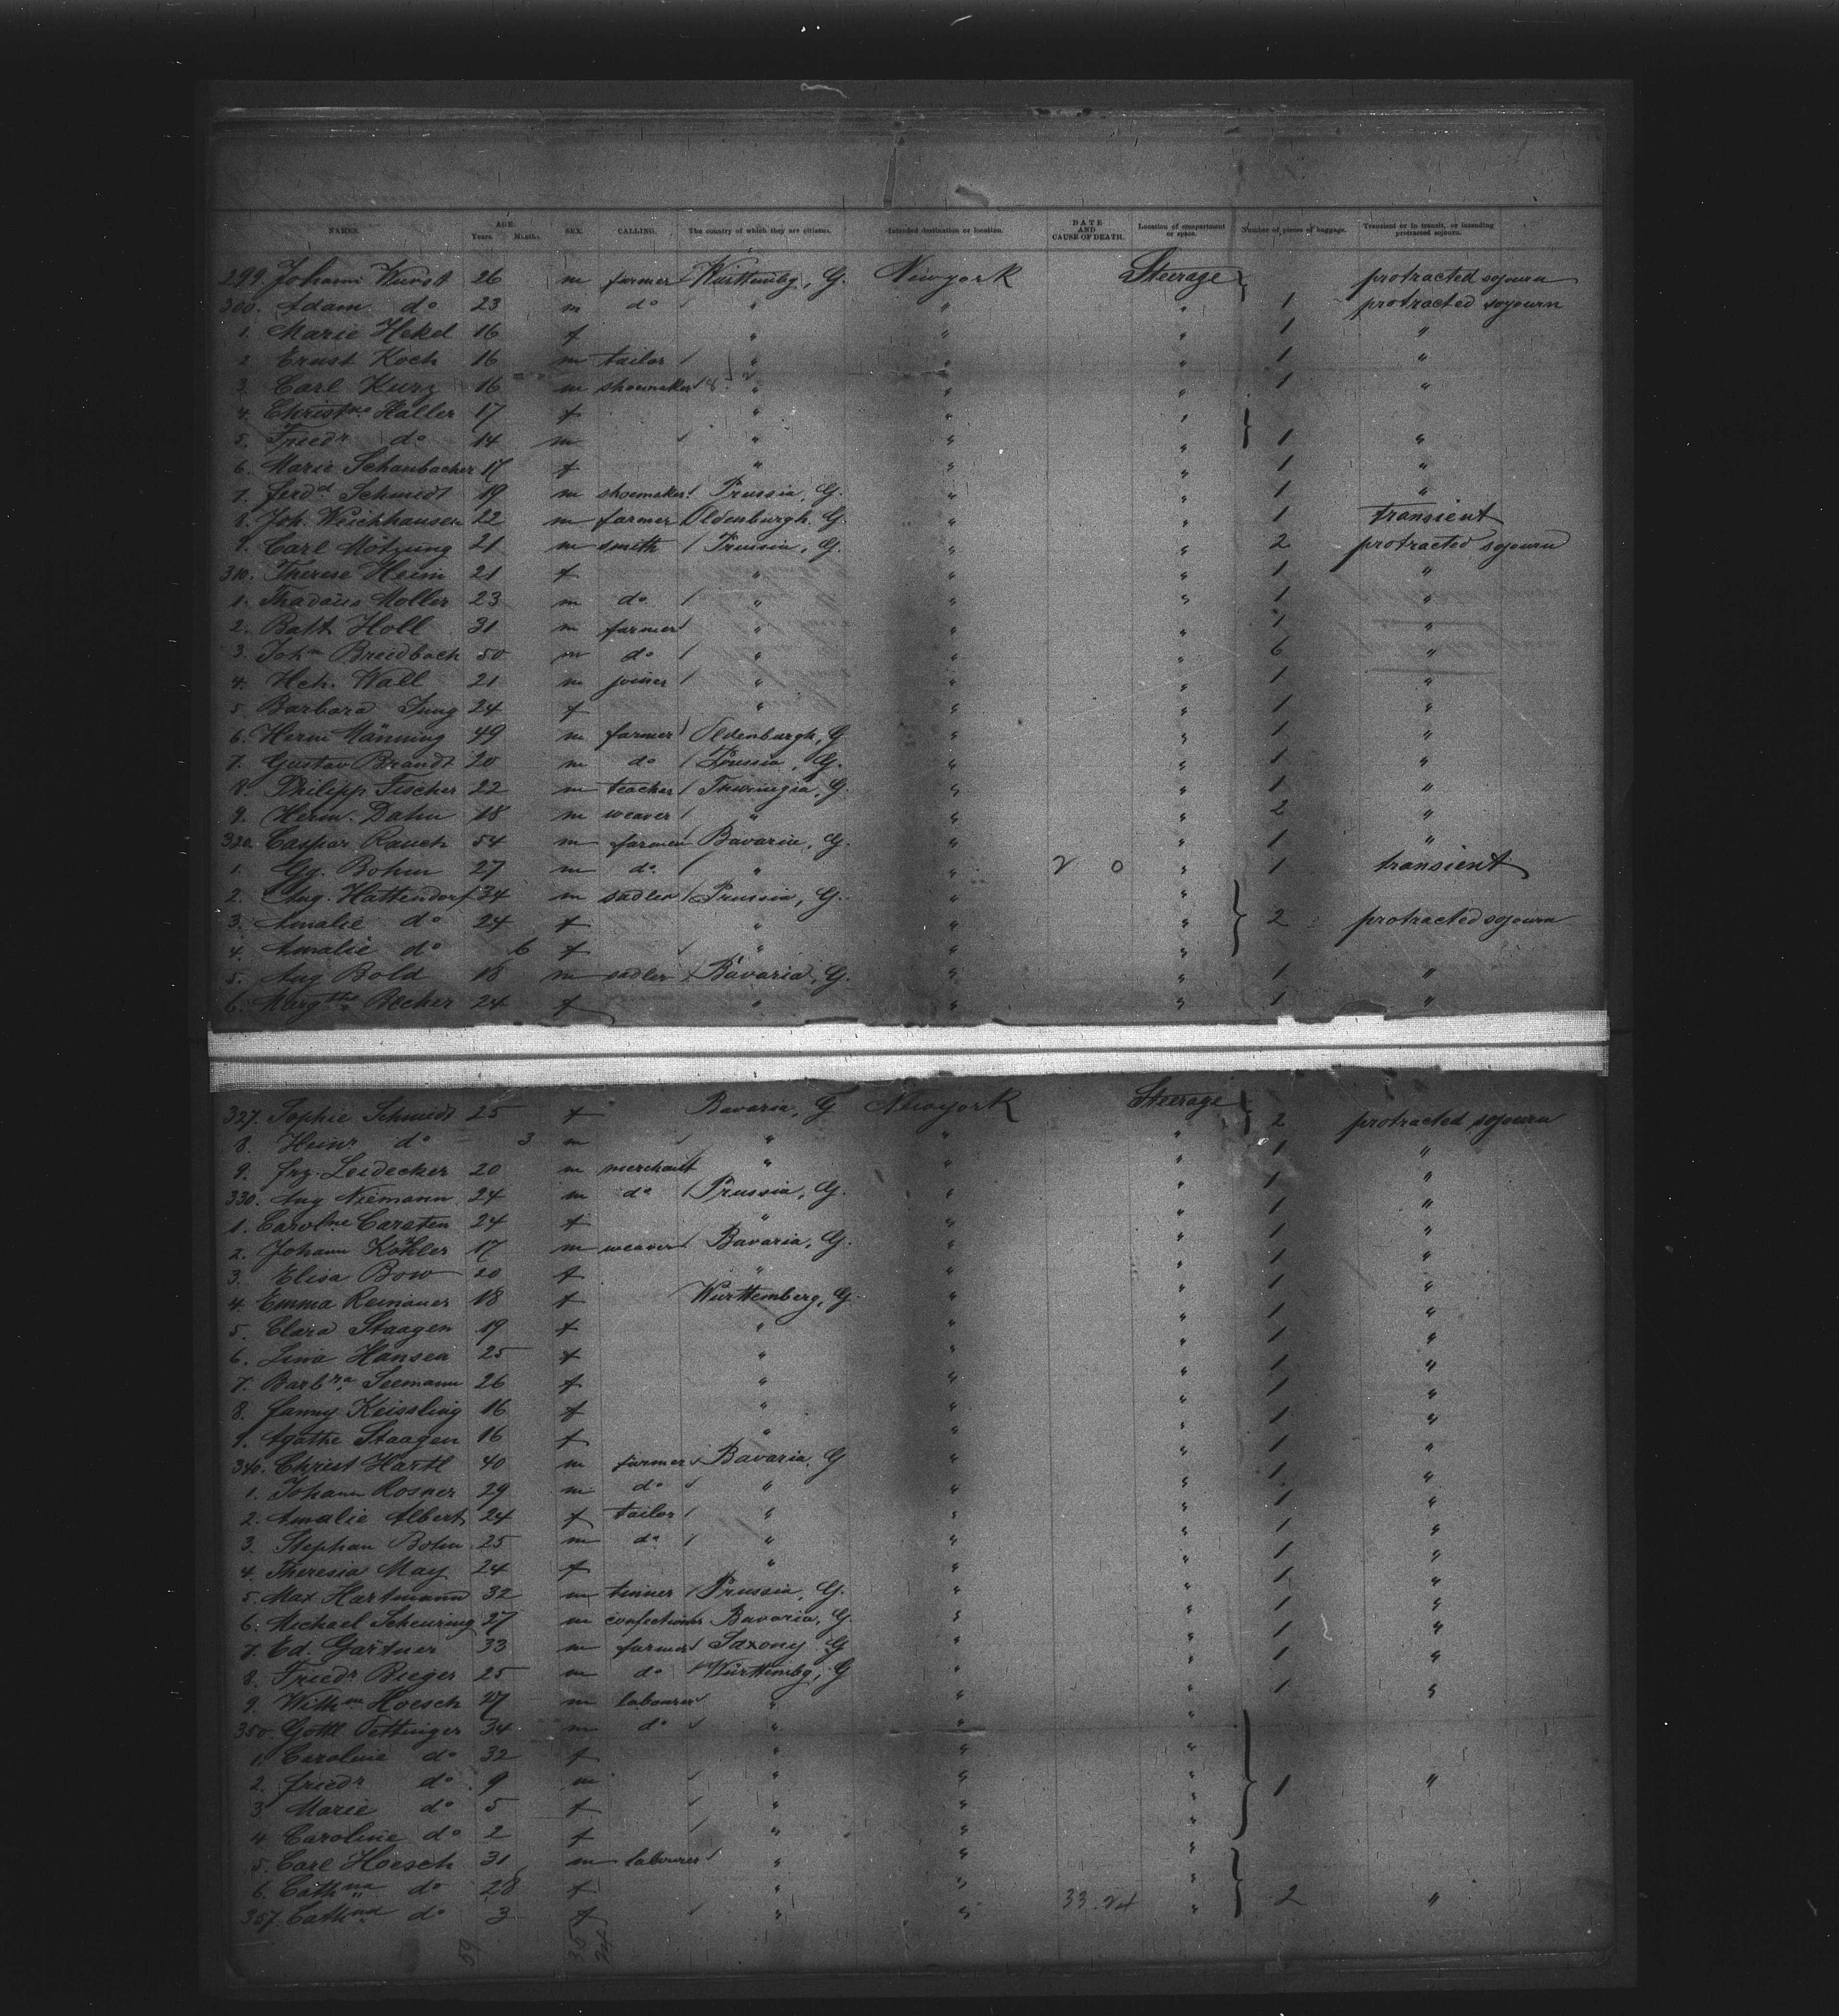 NAMES. AGE. Years. Months. SEX. CALLING. The country of which they are citizens. Intended destination or location. DATE AND CAUSE OF DEATH. Location of compartment or space. Number of pieces of baggage. Transient or in transit, or intending protracted sojourn.
299. Johann Wurst 26 m farmer Württembg, G. Newyork Steerage protracted sojourn
300. Adam do 23 m do " " " 1 protracted sojourn
1. Marie Hekel 16 f " " " 1 "
2 Ernst Koch 16 m tailor " " " 1 "
3. Carl Kurz 16 m shoemaker " " " 1 "
4. Christne Haller 17 f " " "
5. Friedr do 14 m " " " 1 "
6. Marie Schanbacher 17 f " " " 1 "
7. Ferdd Schmidt 19 m shoemaker Prussia, G. " " 1 "
8. Joh. Weichhausen 22 m farmer Oldenburgh, G. " " 1 transient
9. Carl Mötzung 21 m smith Prussia, G. " " 2 protracted sojourn
310. Therese Heim 21 f " " " 1 "
1. Thadäus Moller 23 m do " " " 1 "
2. Balt Holl 31 m farmer " " " 1 "
3. John Breidbach 50 m do " " " 6 "
4. Hch. Wall 21 m joiner " " " 1 "
5 Barbara Jung 24 f " " " 1 "
6. Herm Männing 49 m farmer Oldenburgh, G. " " 1 "
7. Gustav Brandt 20 m do Prussia, G. " " 1 "
8. Philipp Fischer 22 m teacher Thuringia, G. " " 1 "
9. Herm. Dahn 18 m weaver " " " 2 "
320. Caspar Rauch 54 m farmer Bavaria, G. " " 1 "
1. Gg. Bohm 27 m do. " " " 1 transient
2. Aug. Hattendorf 34 m sadler Prussia, G. " "
3. Amalie do 24 f " " " 2 protracted sojourn
4. Amalie do 6 f " " "
5. Aug Bold 18 m sadler Bavaria, G. " " 1 "
6. Margtha Becher 24 f " " " 1 "
327. Sophie Schmidt 25 f Bavaria, G Newyork Steerage 2 protracted sojourn
8. Heinr do 3 m " " " 1 "
9. Frz. Leidecker 20 m merchant " " " 1 "
330. Aug Niemann 24 m do Prussia, G. " " 1 "
1. Carolne Carsten 24 f " " " 1 "
2. Johann Köhler 17 m weaver Bavaria, G. " " 1 "
3. Elisa Bow 20 f " " " 1 "
4. Emma Reinauer 18 f Württemberg, G. " " 1 "
5. Clara Staagen 19 f " " " 1 "
6. Lina Hansen 25 f " " " 1 "
7. Barbra Seemann 26 f " " " 1 "
8. Fanny Keissling 16 f " " " 1 "
9. Agathe Staagen 16 f " " " 1 "
340. Christ Härtl 40 m farmer Bavaria, G " " 1 "
1. Johann Rosner 29 m do " " " 1 "
2. Amalie Albert 24 f tailor " " " 1 "
3. Stephan Bohm 25 m do " " " 1 "
4. Theresia May 24 f " " " 1 "
5. Max Hartmann 32 m tinner Prussia, G. " " 1 "
6. Michael Scheuring 27 m confectioner Bavaria, G. " " 1 "
7. Ed. Gärtner 33 m farmer Saxony G " " 1 "
8. Friedr Rieger 25 m do Württembg, G " " 1 "
9. Wilhm Hoesch 27 m labourer " " "
350. Gottl. Fettinger 34 m do " " "
1. Caroline do 32 f " " "
2. Friedr do 9 m " " " 1 "
3 Marie do 5 f " " "
4 Caroline do 2 f " " "
5. Carl Hoesch 31 m labourer " " "
6. Cathna do 28 f " " " 2 "
357. Cathna do 3 f " " 33 24 "
59 35 24